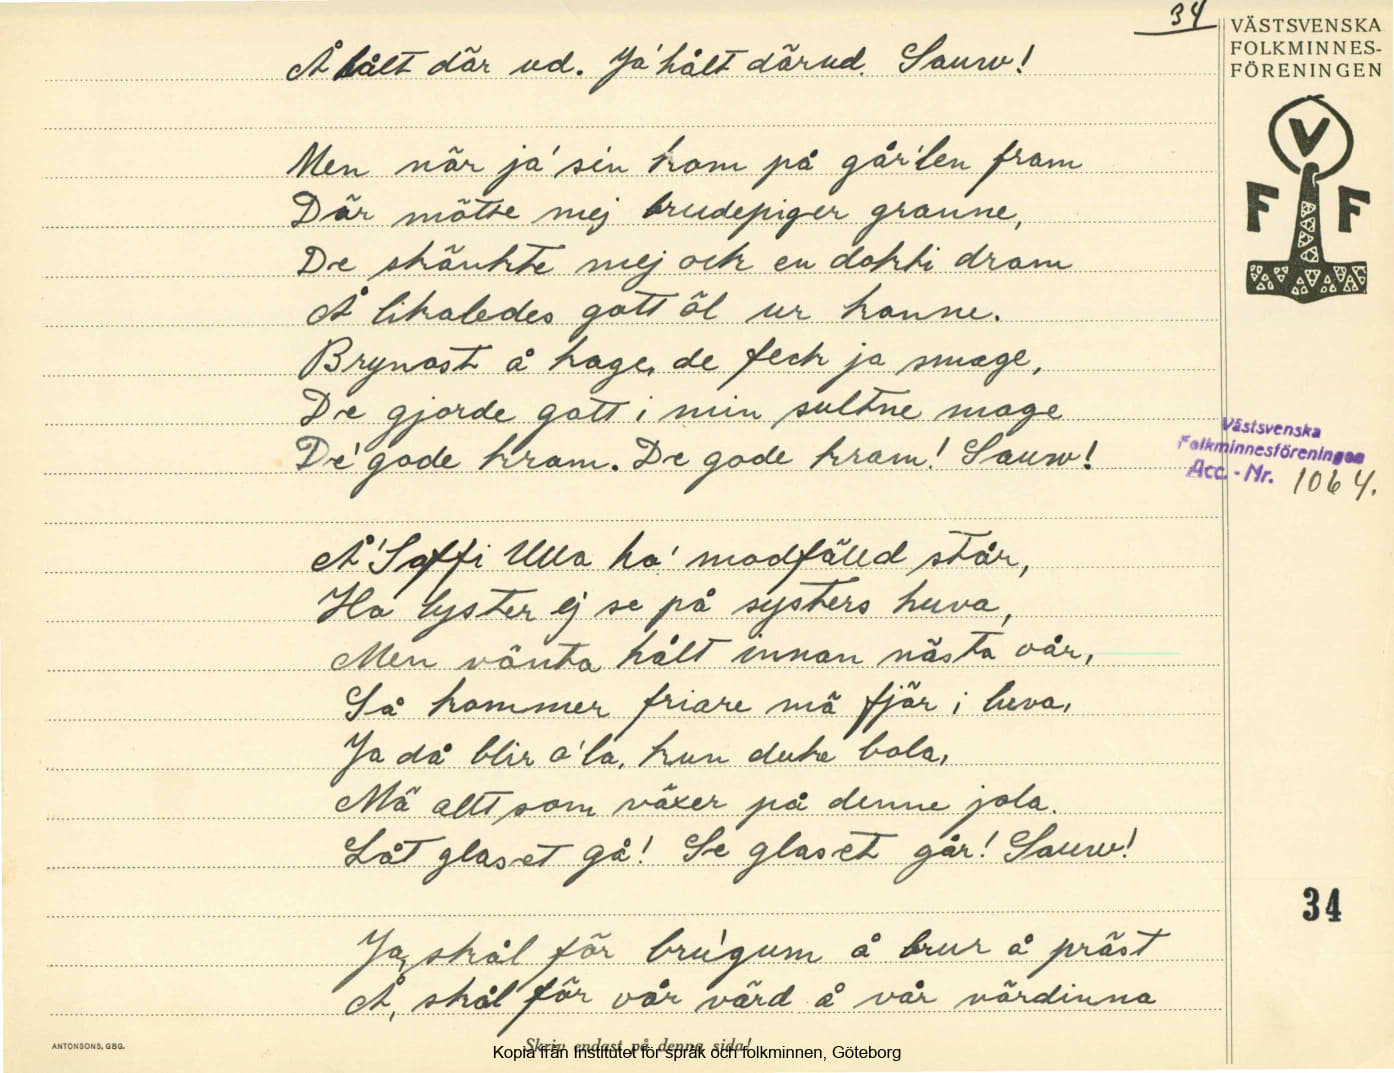 34
VÄSTSVENSKA
FOLKMINNES-
FÖRENINGEN
V
F F
Å hålt där ud. Ja' hålt därud. Sauw!
Men när ja' sin kom på går'len fram
Där mötte mej brudepiger granne,
De skänkte mej ock en dokti dram
Å likaledes gott öl ur kanne.
Brynost å kage, de feck ja smage,
De gjorde gott i min sultne mage
De' gode kram. De gode kram! Sauw!
Västsvenska
Folkminnesföreningen
Acc.-Nr. 1064.
Å' Soffi Ulla ha' modfälld står,
Ho lyster ej se på systers huva,
Men vänta hålt innan nästa vår,
Så kommer friare mä fjär i luva,
Ja då blir o'la, kun duke bola,
Mä allt som växer på denne jola.
Låt glaset gå! Se glaset går! Sauw!
34
Ja, skål för bru'gum å brur å präst
Å, skål för vår värd å vår värdinna
ANTONSONS, GBG.
Skriv endast på denna sida!
Kopia från Institutet för språk och folkminnen, Göteborg